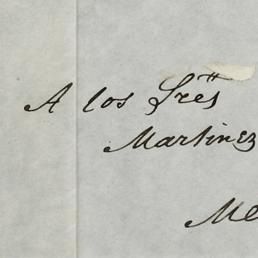 A los Sres
Martinez
Me